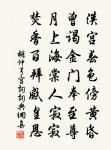 漢宮春色傍黃昏
曾謁金門奉至尊
月上海棠人寂寂
焚香百拜感皇恩
胡仲弓宮詞詞典網喜